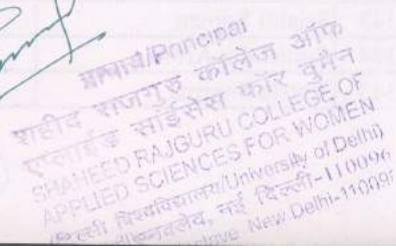 प्राचार्य/Principal
शहीद राजगुरु कॉलेज ऑफ
एप्लाईड साईंसेस फॉर वुमैन
SHAHEED RAJGURU COLLEGE OF
APPLIED SCIENCES FOR WOMEN
(दिल्ली विश्वविद्यालय/University of Delhi)
नई दिल्ली-110096
New Delhi-110096